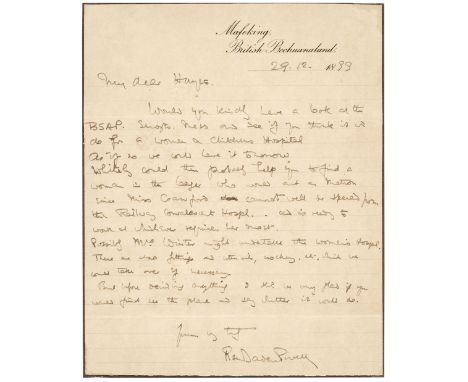 Mafeking,
British Bechuanaland.
29. 12. 1899
My dear Hayes.
Would you kindly have a look at the
BSAP. Sergts. Mess and see if you think it wd
do for a Women & Childrens Hospital
As if so we could have it tomorrow
Whitely could then probably help you to find a
woman in the laager who would act as Matron
since Miss Craufurd cannot well be spared from
the Railway Convalescent Hospl. and is ready to
work at whichever requires her most.
Possibly Mrs Winter might undertake the womens Hospl.
There are also fittings and utensils, crockery etc. there we
could take over if necessary
But before deciding anything I shd be very glad if you
would find in the place and say whether it would do.
Yours
R.S.S. Baden-Powell